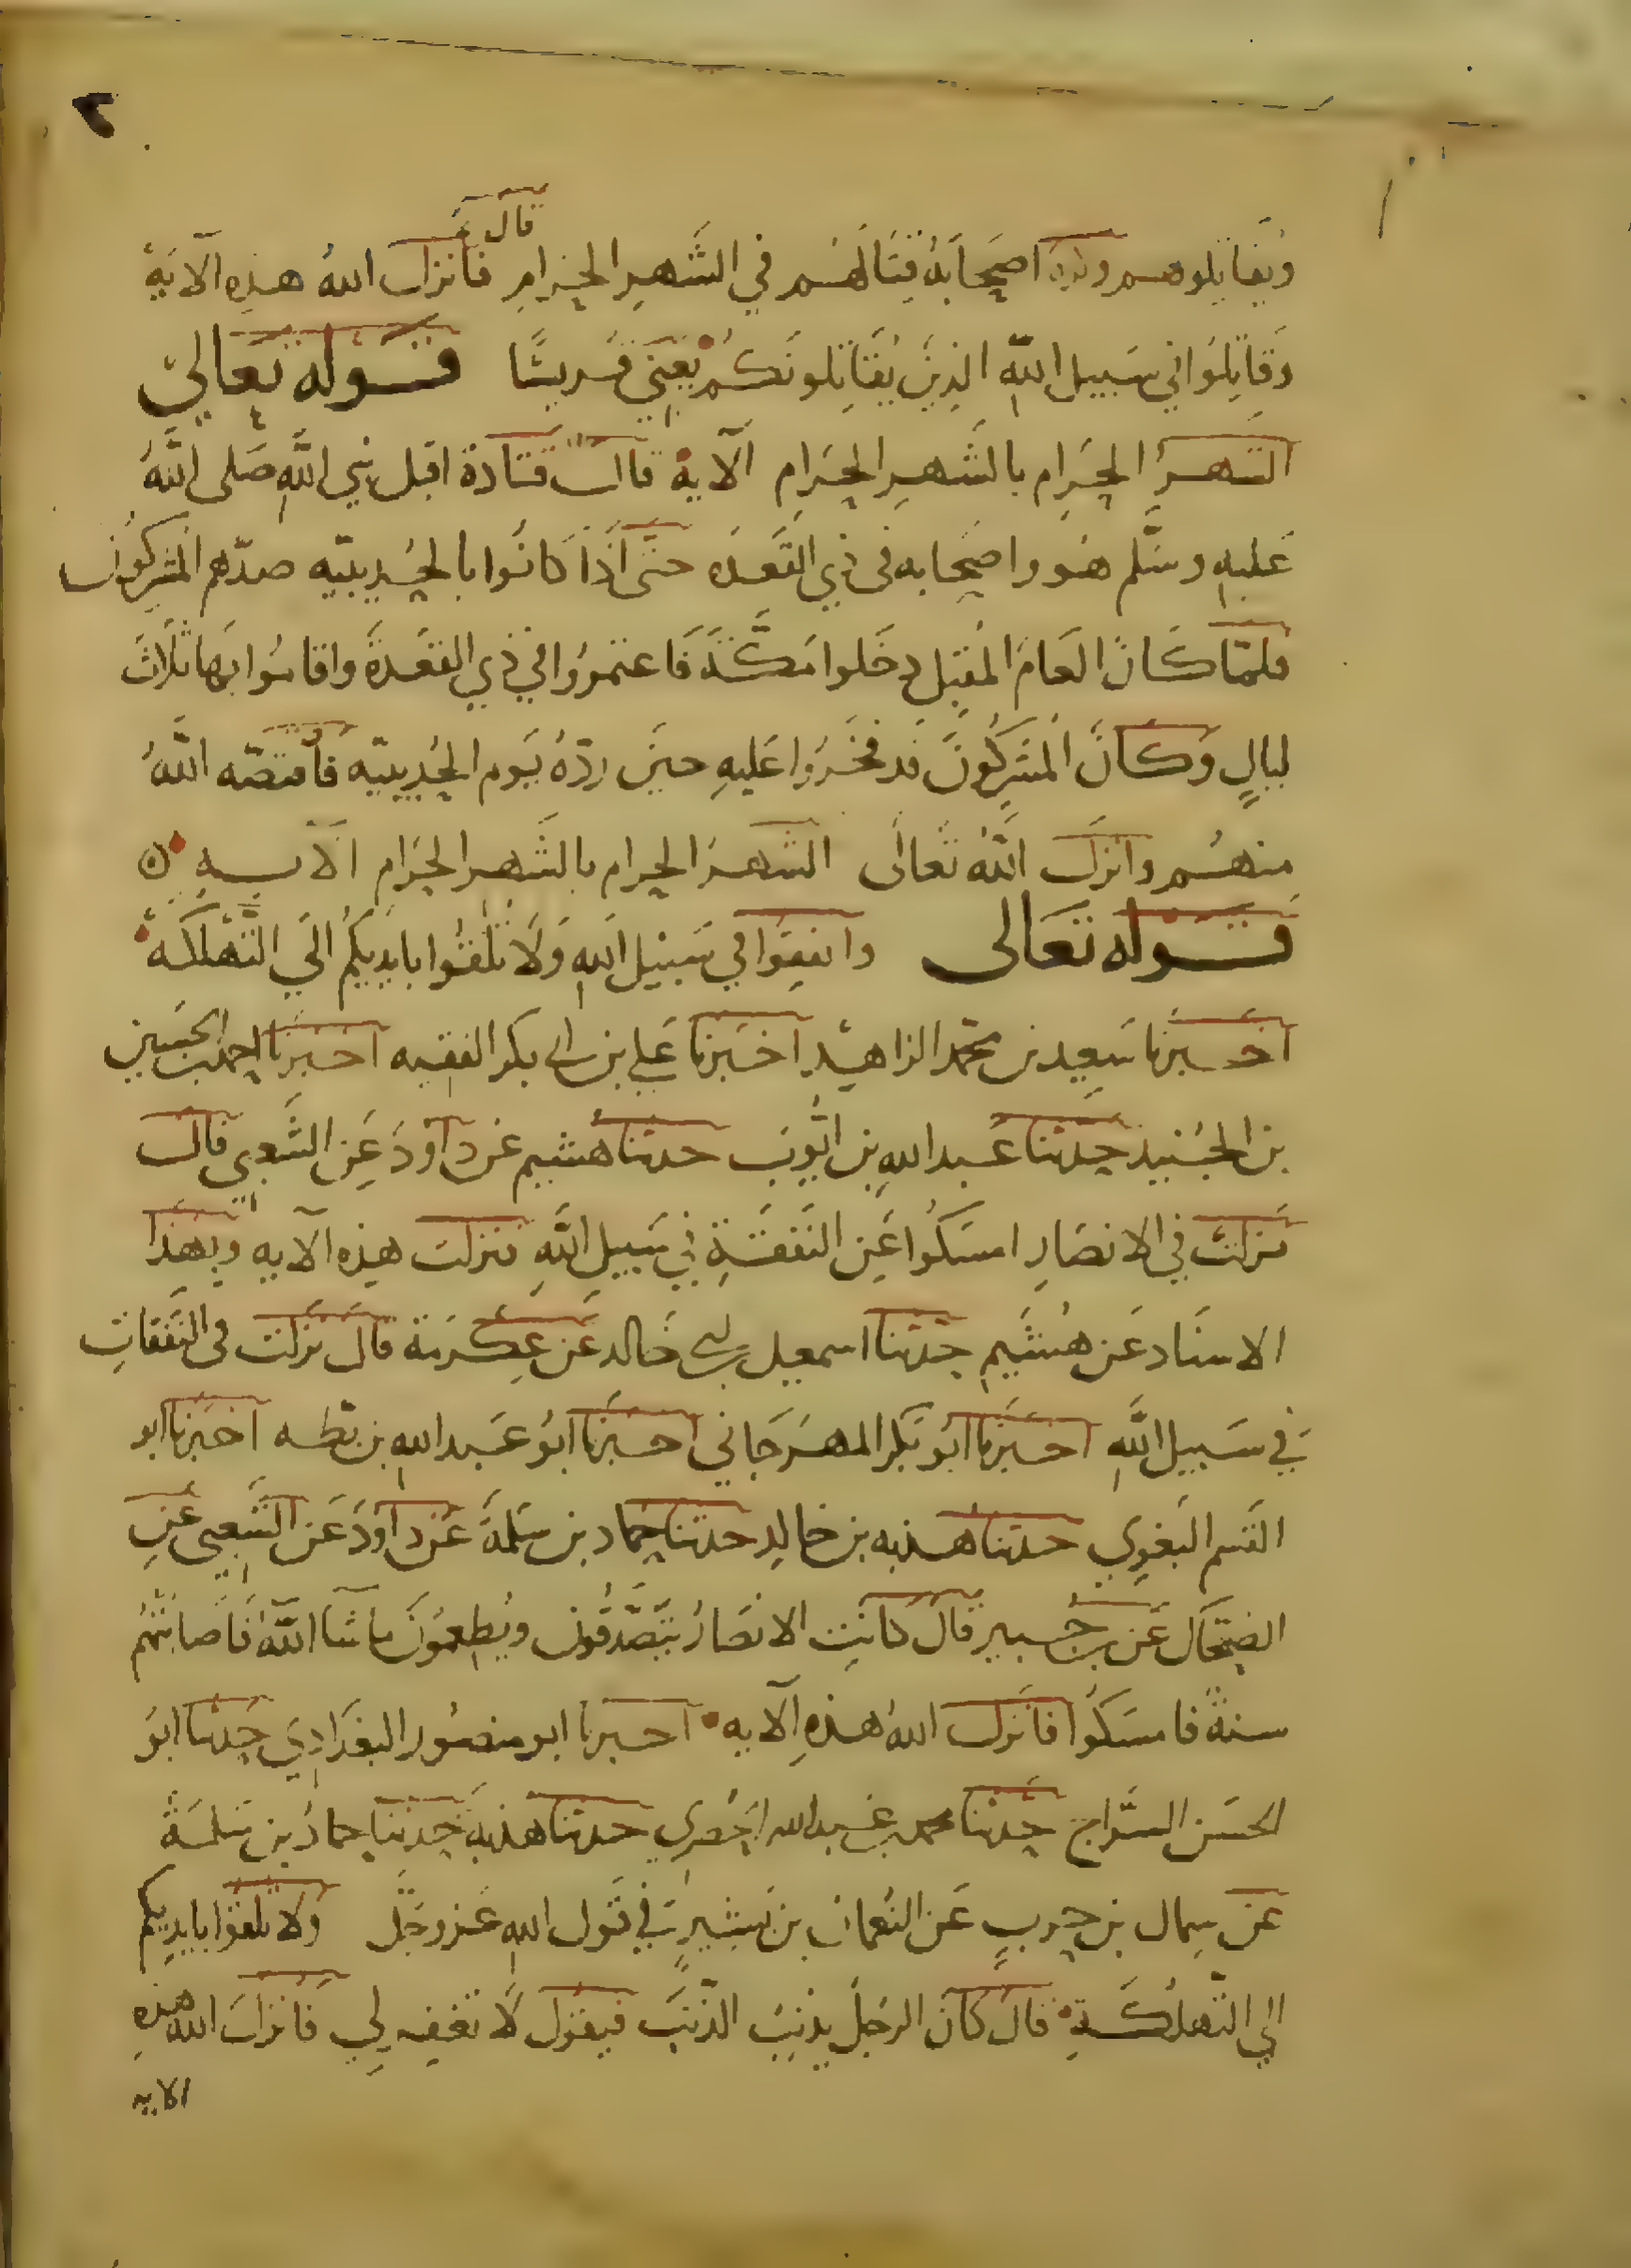 ٢
قال
ويقاتلوهم وكره اصحابه قتالهم في الشهر الحرام فانزل الله هذه الآية
وقاتلوا في سبيل الله الذين يقاتلونكم يعني قريشا قوله تعالى
الشهر الحرام بالشهر الحرام الآية قال قتادة اقبل نبي الله صلى الله
عليه وسلم هو واصحابه في ذي القعده حتى اذا كانوا بالحديبيه صدهم المشركون
فلما كان العام المقبل دخلوا مكة فاعتمروا في ذي القعدة واقاموا بها ثلاث
ليال وكان المشركون قد فخروا عليه حين ردوه يوم الحديبيه فأقصه الله
منهم وانزل الله تعالى الشهر الحرام بالشهر الحرام الآيه
قوله تعالى وانفقوا في سبيل الله ولا تلقوا بايديكم الى التهلكة
اخبرنا سعيد بن محمد الزاهد اخبرنا علي بن ابي بكر الفقيه اخبرنا احمد بن الحسين
بن الجنيد حدثنا عبد الله بن ايوب حدثنا هشيم عن داود عن الشعبي قال
نزلت في الانصار امسكوا عن النفقة في سبيل الله فنزلت هذه الآيه وبهذا
الاسناد عن هشيم حدثنا اسمعيل بن ابي خالد عن عكرمة قال نزلت في النفقات
في سبيل الله اخبرنا ابو بكر المهرجاني اخبرنا ابو عبد الله بن بطه اخبرنا ابو
القسم البغوي حدثنا هدبه بن خالد حدثنا حماد بن سلمة عن داود عن الشعبي عن
الضحاك عن بن جبير قال كانت الانصار يتصدقون ويطعمون ما شا الله فاصابتهم
سنة فامسكوا فانزل الله هذه الآيه اخبرنا ابو منصور البغدادي حدثنا ابو
الحسن السراج حدثنا محمد بن عبد الله الحضرمي حدثنا هدبة حدثنا حماد بن سلمة
عن سماك بن حرب عن النعمان بن بشير في قول الله عز وجل ولا تلقوا بايديكم
الي التهلكة قال كان الرجل يذنب الذنب فيقول لا تغفر لي فانزل الله هذه
الايه